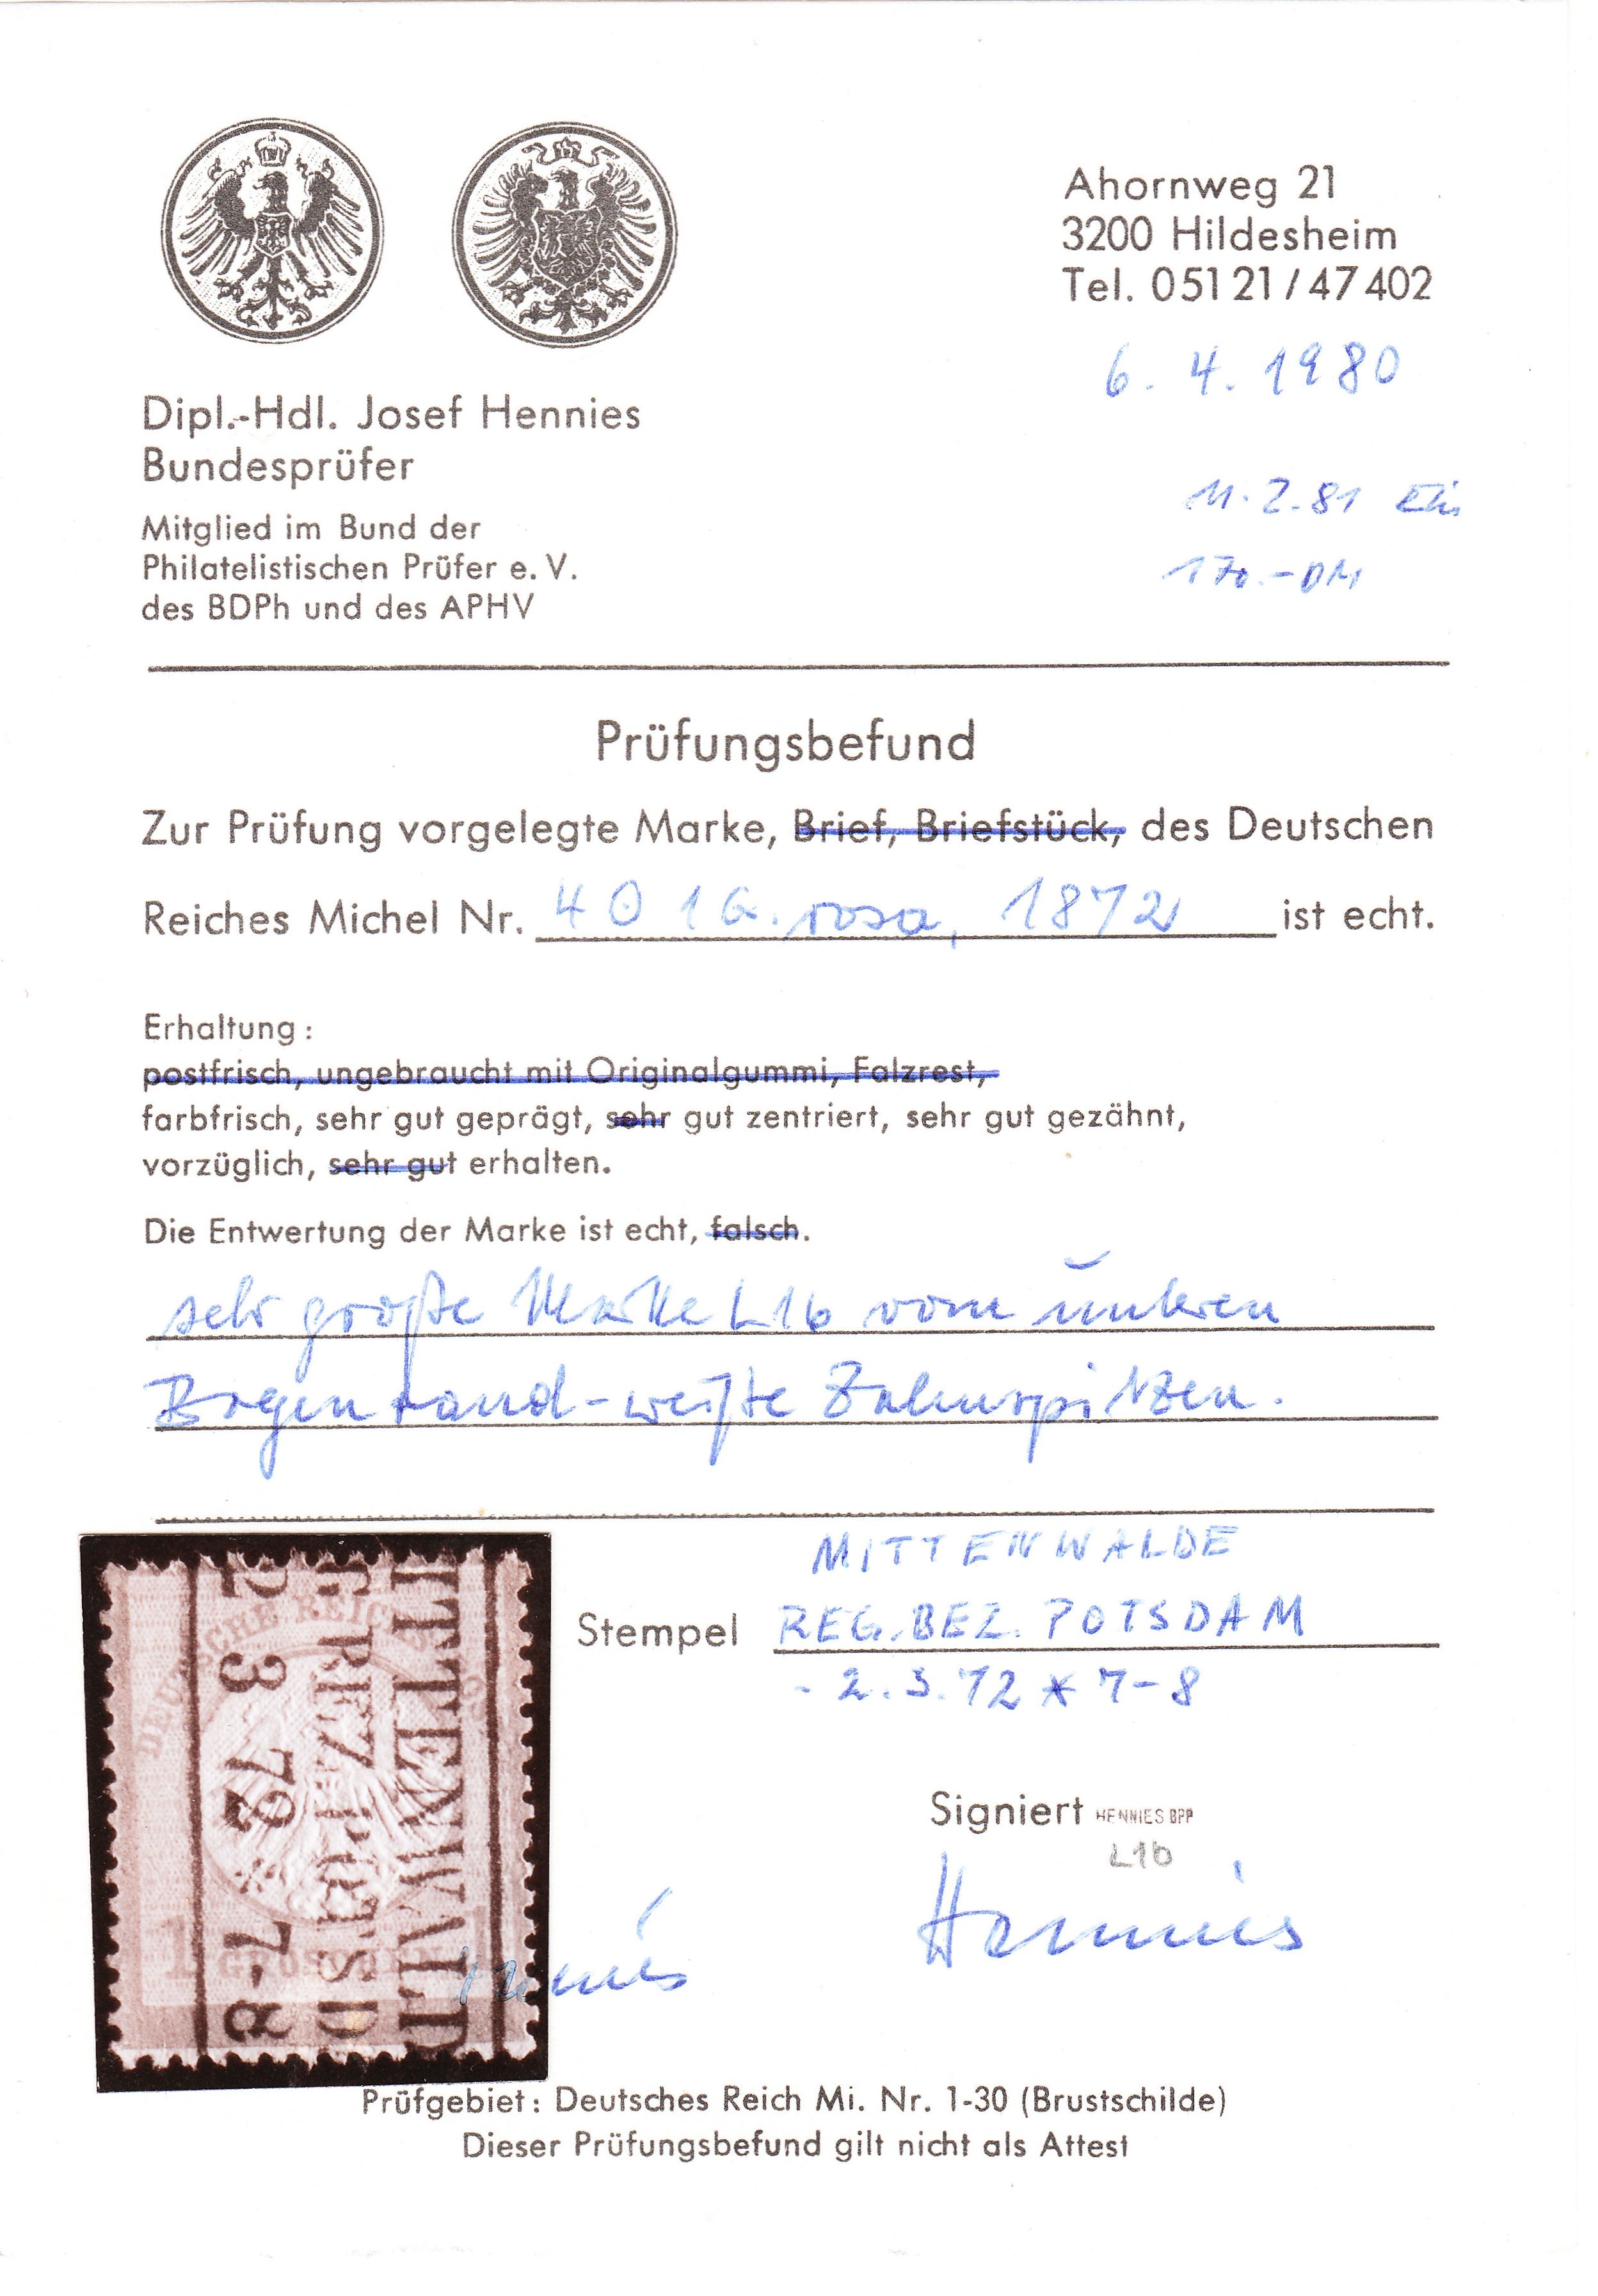 Ahornweg 21
3200 Hildesheim
Tel. 05121/47402
6. 4. 1980
Dipl.-Hdl. Josef Hennies
Bundesprüfer
11.2.81
Mitglied im Bund der
Philatelistischen Prüfer e. V.
170.-DM
des BDPh und des APHV
Prüfungsbefund
Zur Prüfung vorgelegte Marke, Brief, Briefstück, des Deutschen
Reiches Michel Nr. 4 O 1 G. rosa, 1872 ist echt.
Erhaltung:
postfrisch, ungebraucht mit Originalgummi, Falzrest,
farbfrisch, sehr gut geprägt, sehr gut zentriert, sehr gut gezähnt,
vorzüglich, sehr gut erhalten.
Die Entwertung der Marke ist echt, falsch.
sehr große Marke L16 vom unteren
Bogenrand-weiße Zahnspitzen.
MITTENWALDE
Stempel REG.BEZ. POTSDAM
- 2.3.72 * 7-8
ITTENWALD
G. BEZ. POTSD
2 3 72 * 7-8
DEUTSCHE REICHS
1 GROSCHEN 1
Signiert HENNIES BPP
L16
Hennies
nnies
Prüfgebiet: Deutsches Reich Mi. Nr. 1-30 (Brustschilde)
Dieser Prüfungsbefund gilt nicht als Attest